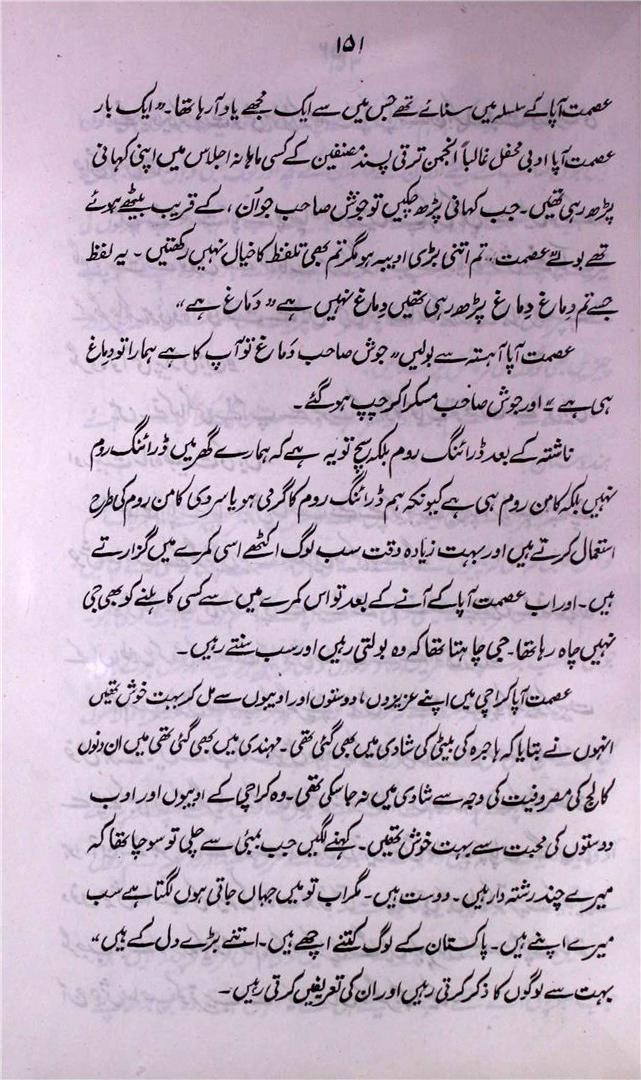 ۱۵۱
عصمت آپا کے سلسلہ میں سنائے تھے جس میں سے ایک مجھے یاد آ رہا تھا۔ "ایک بار
عصمت آپا ادبی محفل غالباً انجمن ترقی پسند مصنفین کے کسی ماہانہ اجلاس میں اپنی کہانی
پڑھ رہی تھیں۔ جب کہانی پڑھ چکیں تو جوش صاحب جو اُن، کے قریب بیٹھے ہوئے
تھے بولے عصمت۔ تم اتنی بڑی ادیبہ ہو مگر تم بھی تلفظ کا خیال نہیں رکھتیں۔ یہ لفظ
جسے تم دِماغ دِماغ پڑھ رہی تھیں دِماغ نہیں ہے "دَماغ ہے"
عصمت آپا آہستہ سے بولیں "جوش صاحب دَماغ تو آپ کا ہے ہمارا تو دِماغ
ہی ہے" اور جوش صاحب مسکرا کر چپ ہو گئے۔
ناشتہ کے بعد ڈرائنگ روم بلکہ سچ تو یہ ہے کہ ہمارے گھر میں ڈرائنگ روم
نہیں بلکہ کامن روم ہی ہے کیونکہ ہم ڈرائنگ روم کا گرمی ہو یا سردی کامن روم کی طرح
استعمال کرتے ہیں اور بہت زیادہ وقت سب لوگ اکٹھے اسی کمرے میں گزارتے
ہیں۔ اور اب عصمت آپا کے آنے کے بعد تو اس کمرے میں سے کسی کا ہلنے کو بھی جی
نہیں چاہ رہا تھا۔ جی چاہتا تھا کہ وہ بولتی رہیں اور سب سنتے رہیں۔
عصمت آپا کراچی میں اپنے عزیزوں، دوستوں اور ادیبوں سے مل کر بہت خوش تھیں
انہوں نے بتایا کہ ہاجرہ کی بیٹی کی شادی میں بھی گئی تھی۔ مہندی میں بھی گئی تھی میں ان دنوں
کالج کی مصروفیت کی وجہ سے شادی میں نہ جا سکی تھی۔ وہ کراچی کے ادیبوں اور ادب
دوستوں کی محبت سے بہت خوش تھیں۔ کہنے لگیں جب بمبئی سے چلی تو سوچا تھا کہ
میرے چند رشتہ دار ہیں۔ دوست ہیں۔ مگر اب تو میں جہاں جاتی ہوں لگتا ہے سب
میرے اپنے ہیں۔ پاکستان کے لوگ کتنے اچھے ہیں۔ اتنے بڑے دل کے ہیں"
بہت سے لوگوں کا ذکر کرتی رہیں اور ان کی تعریفیں کرتی رہیں۔